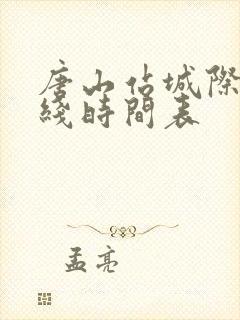 唐山站城際
綫時間表
孟亮